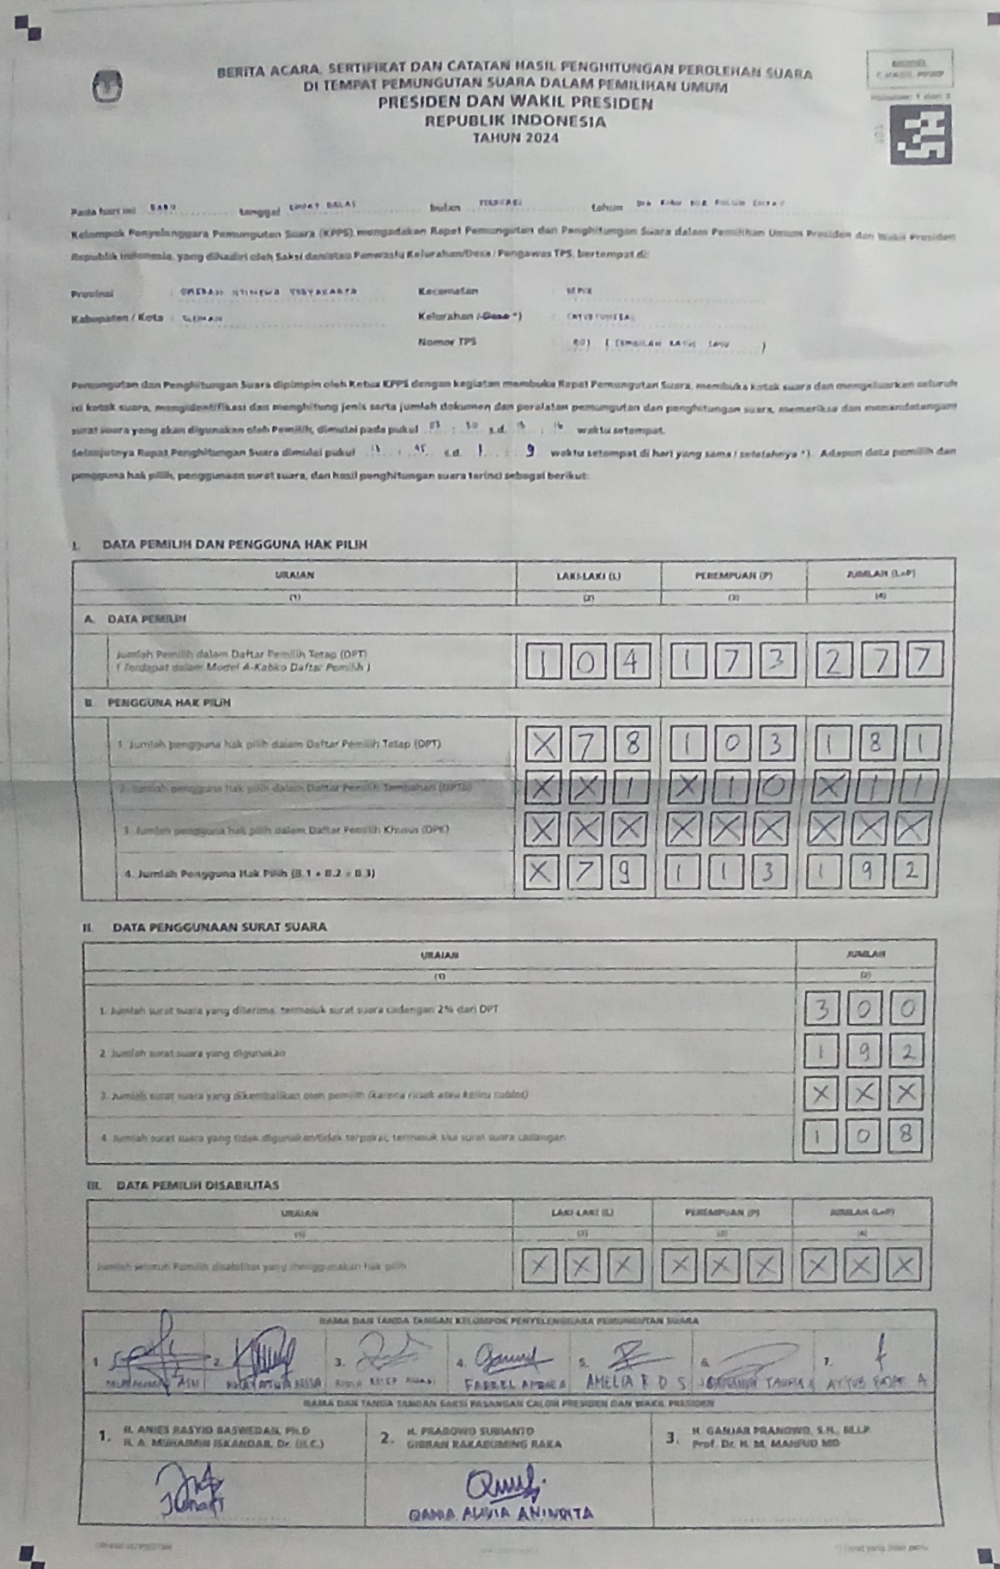 BERITA ACARA, SERTIFIKAT DAN CATATAN HASIL PENGHITUNGAN PEROLEHAN SUARA
DI TEMPAT PEMUNGUTAN SUARA DALAM PEMILIHAN UMUM
PRESIDEN DAN WAKIL PRESIDEN
REPUBLIK INDONESIA
TAHUN 2024
Pada hari ini RABU tanggal EMPAT BELAS bulan FEBRUARI tahun DUA RIBU DUA PULUH EMPAT
Kelompok Penyelenggara Pemungutan Suara (KPPS) mengadakan Rapat Pemungutan dan Penghitungan Suara dalam Pemilihan Umum Presiden dan Wakil Presiden
Republik Indonesia, yang dihadiri oleh Saksi dan/atau Panwaslu Kelurahan/Desa / Pengawas TPS, bertempat di:
Provinsi : DAERAH ISTIMEWA YOGYAKARTA Kecamatan :
Kabupaten / Kota : SLEMAN Kelurahan / Desa *) : CATURTUNGGAL
Nomor TPS : 901
Pemungutan dan Penghitungan Suara dipimpin oleh Ketua KPPS dengan kegiatan membuka Rapat Pemungutan Suara, membuka kotak suara dan mengeluarkan seluruh
isi kotak suara, mengidentifikasi dan menghitung jenis serta jumlah dokumen dan peralatan pemungutan dan penghitungan suara, memeriksa dan menandatangani
surat suara yang akan digunakan oleh Pemilih, dimulai pada pukul s.d. waktu setempat.
Selanjutnya Rapat Penghitungan Suara dimulai pukul s.d. waktu setempat di hari yang sama / setelahnya *). Adapun data pemilih dan
pengguna hak pilih, penggunaan surat suara, dan hasil penghitungan suara terinci sebagai berikut:
I. DATA PEMILIH DAN PENGGUNA HAK PILIH
URAIAN LAKI-LAKI (L) PEREMPUAN (P) JUMLAH (L+P)
(1) (2) (3) (4)
A. DATA PEMILIH
Jumlah Pemilih dalam Daftar Pemilih Tetap (DPT)
( Terdapat dalam Model A-Kabko Daftar Pemilih )
1 0 4 1 7 3 2 7 7
B. PENGGUNA HAK PILIH
1. Jumlah pengguna hak pilih dalam Daftar Pemilih Tetap (DPT) X 7 8 1 0 3 1 8 1
2. Jumlah pengguna hak pilih dalam Daftar Pemilih Tambahan (DPTb) X X 1 X 1 0 X 1 1
3. Jumlah pengguna hak pilih dalam Daftar Pemilih Khusus (DPK) X X X X X X X X X
4. Jumlah Pengguna Hak Pilih (B.1 + B.2 + B.3) X 7 9 1 1 3 1 9 2
II. DATA PENGGUNAAN SURAT SUARA
URAIAN JUMLAH
(1) (2)
1. Jumlah surat suara yang diterima, termasuk surat suara cadangan 2% dari DPT 3 0 0
2. Jumlah surat suara yang digunakan 1 9 2
3. Jumlah surat suara yang dikembalikan oleh pemilih (karena rusak atau keliru coblos) X X X
4. Jumlah surat suara yang tidak digunakan/tidak terpakai, termasuk sisa surat suara cadangan 1 0 8
III. DATA PEMILIH DISABILITAS
URAIAN LAKI-LAKI (L) PEREMPUAN (P) JUMLAH (L+P)
(1) (2) (3) (4)
Jumlah seluruh Pemilih disabilitas yang menggunakan hak pilih X X X X X X X X X
NAMA DAN TANDA TANGAN KELOMPOK PENYELENGGARA PEMUNGUTAN SUARA
1. 2. 3. 4. 5. 6. 7.
FARREL AMELIA R D S AYYUB
NAMA DAN TANDA TANGAN SAKSI PASANGAN CALON PRESIDEN DAN WAKIL PRESIDEN
1. H. ANIES RASYID BASWEDAN, Ph.D
H. A. MUHAIMIN ISKANDAR, Dr. (H.C.)
2. H. PRABOWO SUBIANTO
GIBRAN RAKABUMING RAKA
3. H. GANJAR PRANOWO, S.H., M.I.P.
Prof. Dr. H. M. MAHFUD MD
QANIA ALIVIA ANINDITA